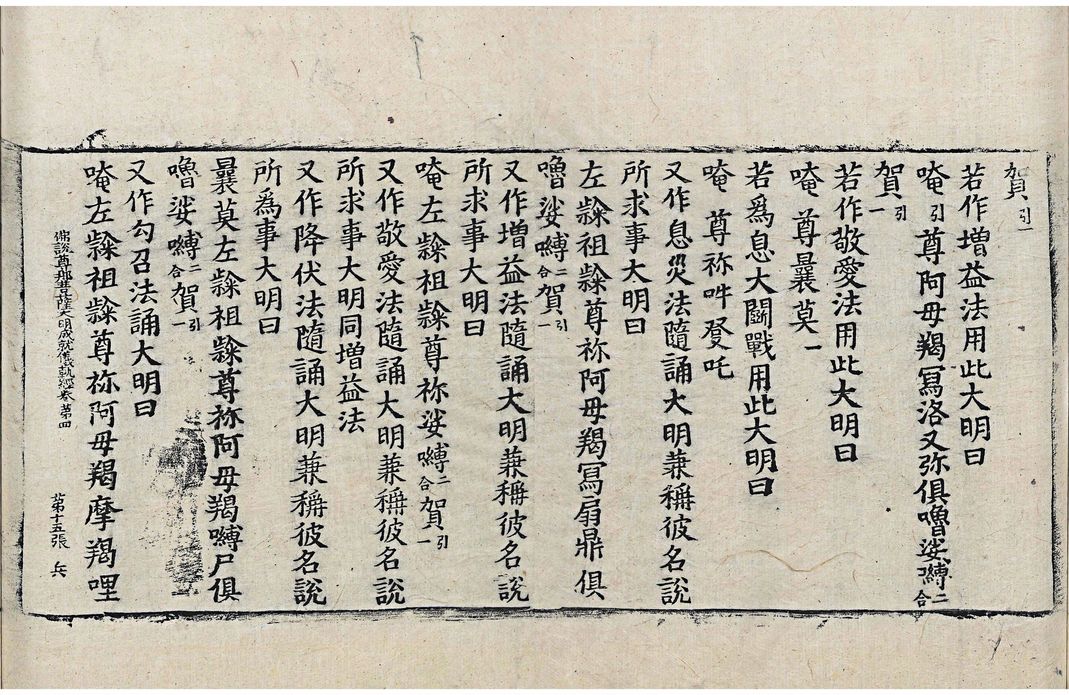 賀引一
若作增益法用此大明曰
唵引尊阿毋羯冩洛叉弥俱嚕娑嚩二合
賀引一
若作敬愛法用此大明曰
唵尊曩莫一
若爲息大鬬戰用此大明曰
唵 尊祢吽癹吒
又作息災法隨誦大明兼稱彼名說
所求事大明曰
左隸祖隸尊祢阿毋羯冩扇鼎俱
嚕娑嚩二合賀引一
又作增益法隨誦大明兼稱彼名說
所求事大明曰
唵左隸祖隸尊祢娑嚩二合賀引一
又作敬愛法隨誦大明兼稱彼名說
所求事大明同增益法
又作降伏法隨誦大明兼稱彼名說
所為事大明曰
曩莫左隸祖隸尊祢阿毋羯嚩尸俱
嚕娑嚩二合賀引一
又作勾召法誦大明曰
唵左隸祖隸尊祢阿毋羯摩羯哩
佛說尊那菩薩大明成就儀軌經卷第四 第十五張 兵